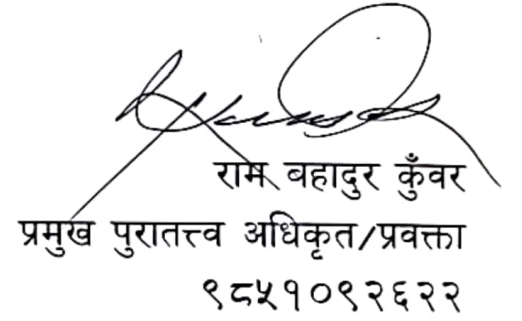 राम बहादुर कुँवर
प्रमुख पुरातत्त्व अधिकृत/प्रवक्ता
९८५१०९२६२२